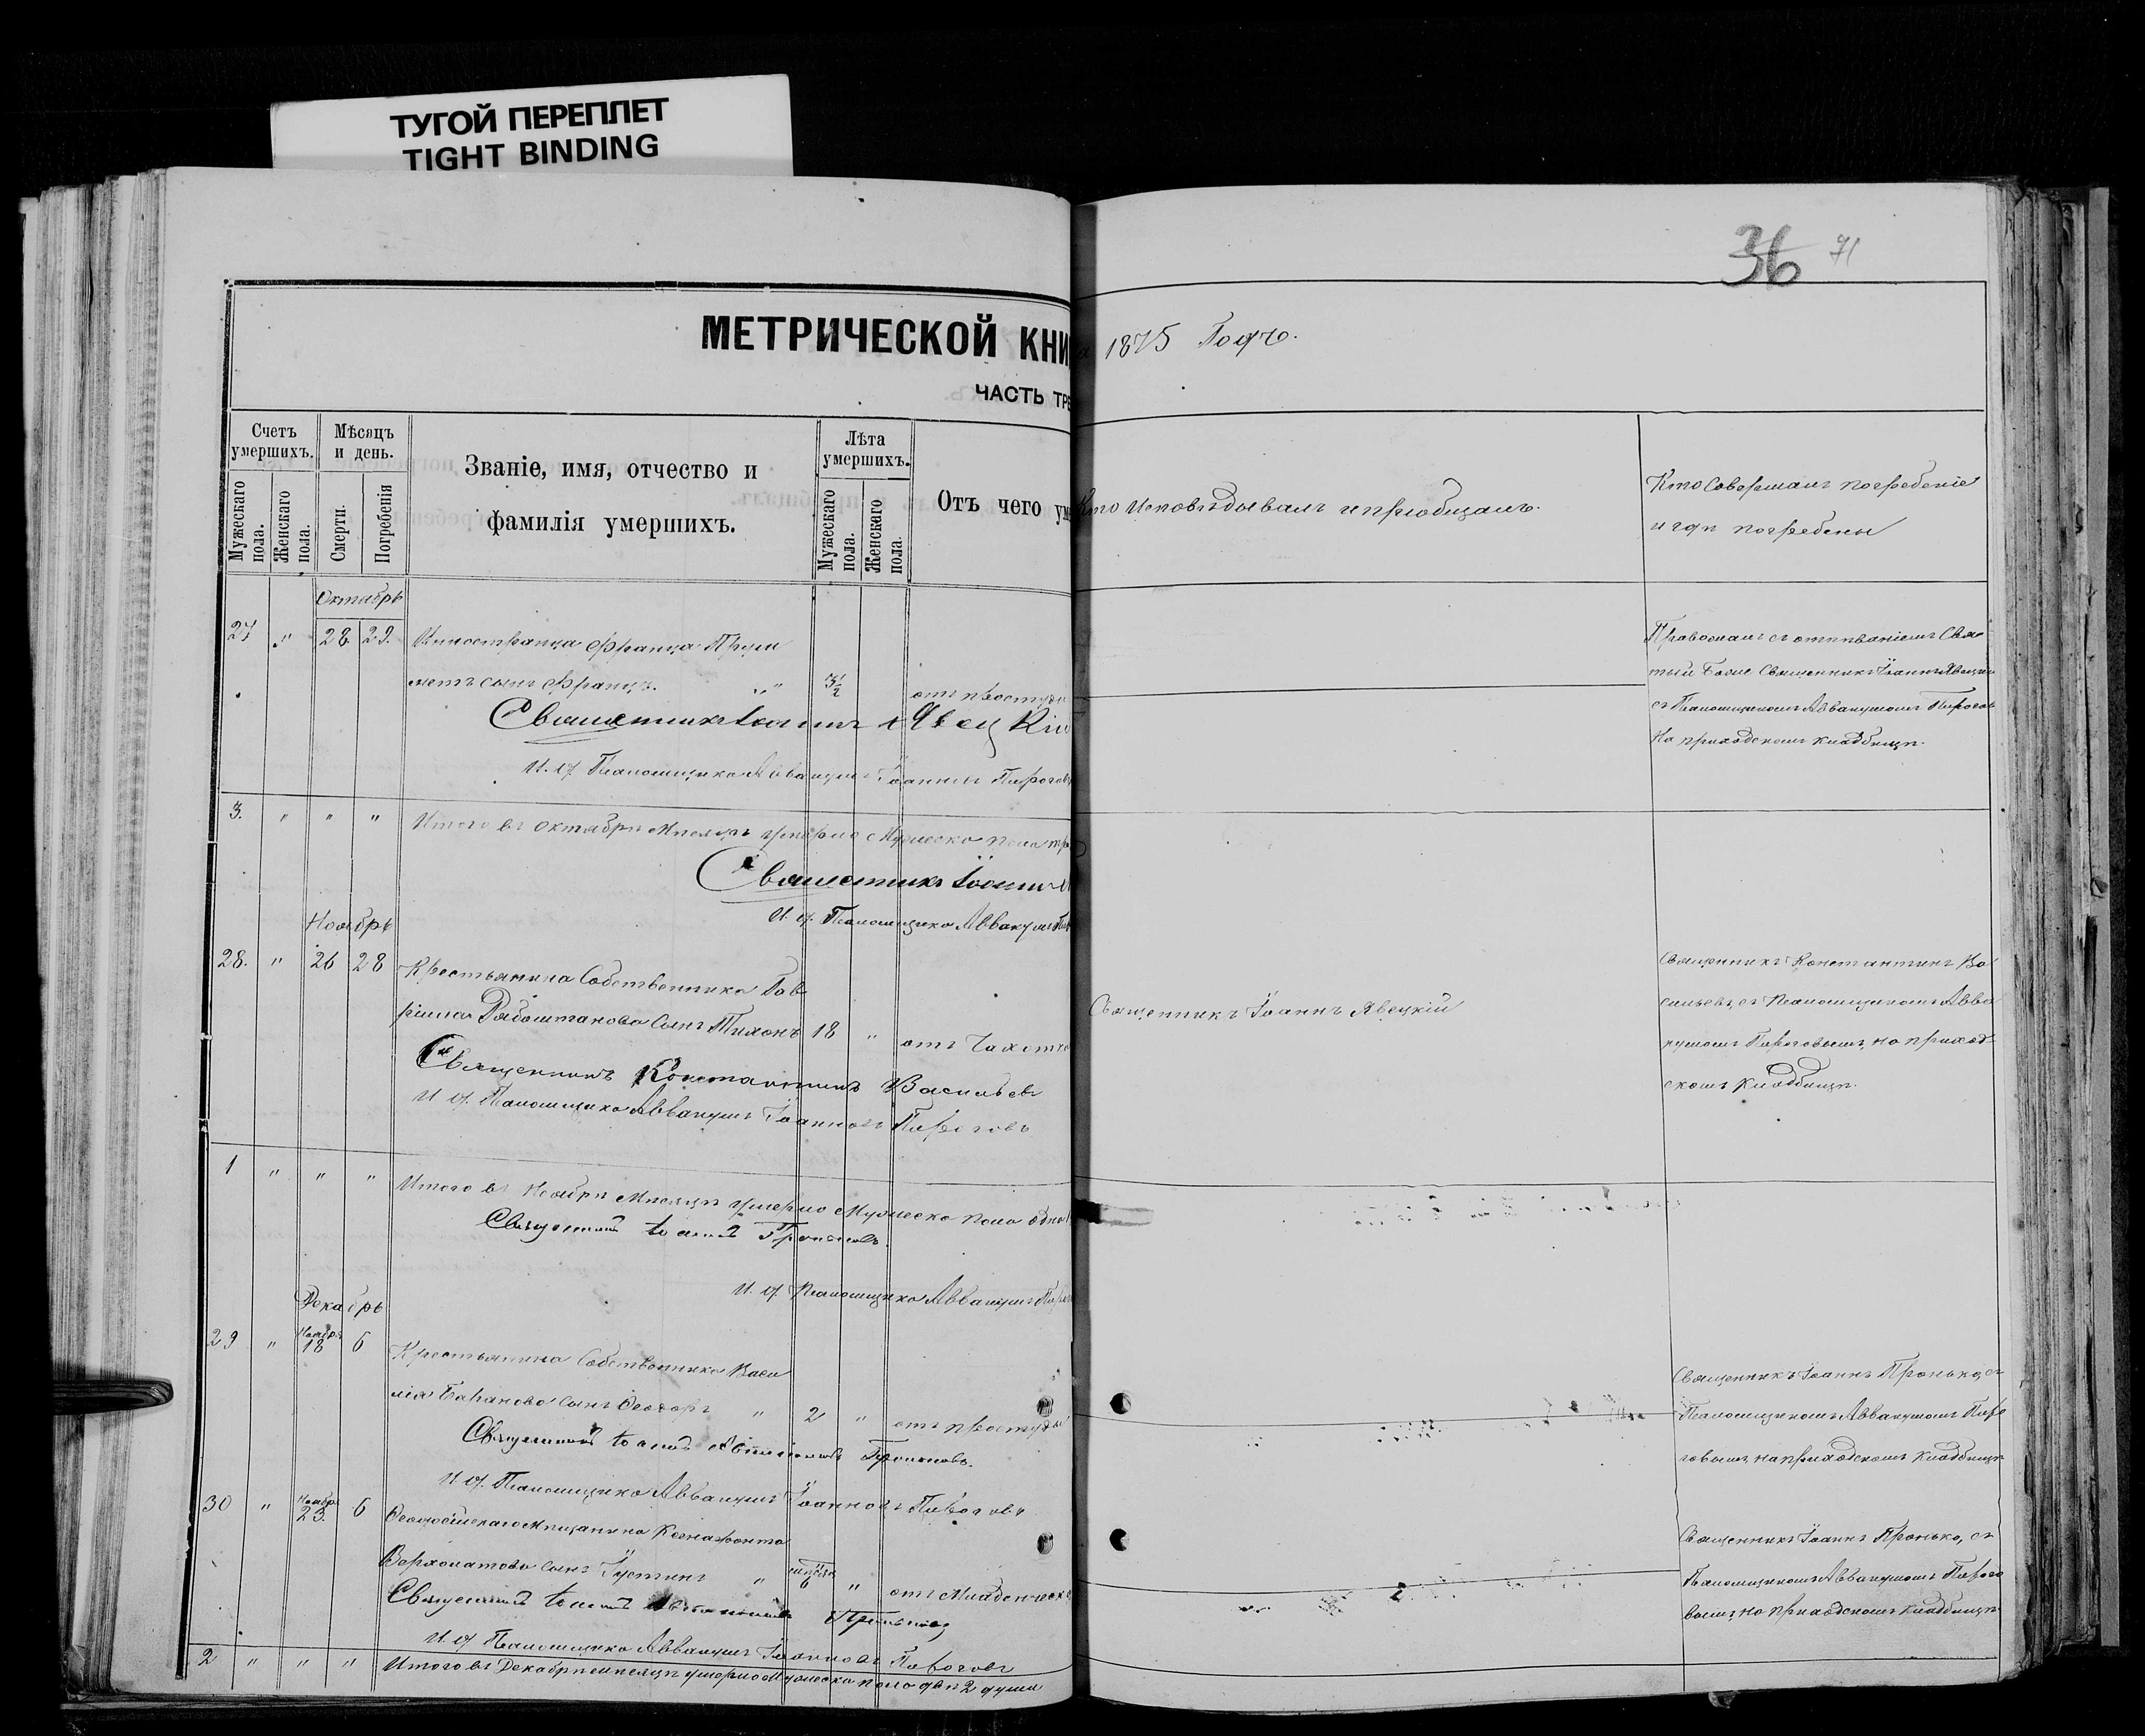 ТУГОЙ ПЕРЕПЛЕТ
TIGHT BINDING
36 71
МЕТРИЧЕСКОЙ КНИ
ЧАСТЬ ТРЕ
1875 Годъ.
Счетъ умершихъ.
Мужескаго пола.
Женскаго пола.
Мѣсяцъ и день.
Смерти.
Погребенія
Званіе, имя, отчество и
фамилія умершихъ.
Лѣта умершихъ.
Мужескаго пола.
Женскаго пола.
Отъ чего уме
Кто исповѣдывалъ и пріобщалъ.
Кто совершалъ погребеніе
и гдѣ погребены
Октябрь
27 " 28 29. Иностранца Франца
сынъ Францъ. " 3½ отъ простуды
Священникъ Іоаннъ Явецкій
И. д. Псаломщика Аввакумъ Іоанновъ Пироговъ
Провожалъ съ отпѣваніемъ Свя
тый Боже Священникъ Іоаннъ Явецкій
съ Псаломщикомъ Аввакумомъ Пирогов
на приходскомъ кладбищѣ.
3. " " " Итого въ Октябрѣ мѣсяцѣ умерло мужеска пола тр
Священникъ Іоаннъ
И. д. Псаломщика Аввакумъ Пир
Ноябрь
28. " 26 28 Крестьянина Собственника Гав
ріила сынъ Тихонъ 18 " отъ Чахотки
Священникъ Константинъ Васильев
И. д. Псаломщика Аввакумъ Іоанновъ Пироговъ
Священникъ Іоаннъ Явецкій
Священникъ Константинъ Ва
сильевъ, съ Псаломщикомъ Авва
кумомъ Пироговымъ, на приход
скомъ кладбищѣ.
1 " " " Итого въ Ноябрѣ мѣсяцѣ умерло мужеска пола одна
Священникъ Іоаннъ
И. д. Псаломщика Аввакумъ Пиро
Декабрь
29 " Ноябр. 18 6 Крестьянина Собственника Васи
лія Баранова сынъ Ѳеодоръ " 2 " отъ простуды
Священникъ Іоаннъ
И. д. Псаломщика Аввакумъ Іоанновъ Пироговъ
Священникъ Іоаннъ Пронько, съ
Псаломщикомъ Аввакумомъ Пиро
говымъ, на приходскомъ кладбищѣ
30 " Ноябр. 23. 6 Ѳеодосійскаго мѣщанина Ксенофонта
сынъ Іустинъ " 6 " отъ Младенческ
Священникъ Іоаннъ
И. д. Псаломщика Аввакумъ Іоанновъ Пироговъ
Священникъ Іоаннъ Пронько, съ
Псаломщикомъ Аввакумомъ Пирого
вымъ, на приходскомъ кладбищѣ
2 " " " Итого въ Декабрѣ мѣсяцѣ умерло мужеска пола двѣ 2 души